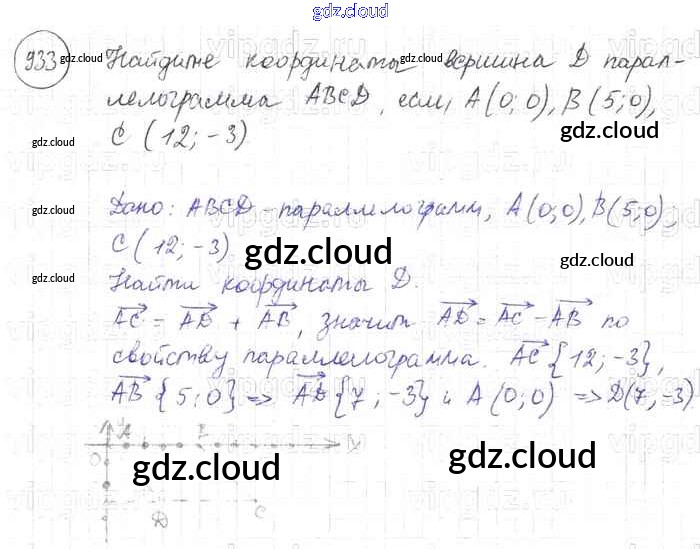 gdz.cloud
933 Найдите координаты вершина D парал-
лелограмма ABCD, если, A(0;0), B(5;0),
C(12;-3)
Дано: ABCD - параллелограмм, A(0;0), B(5;0),
C(12;-3)
Найти координаты D.
AC = AD + AB, значит AD = AC - AB по
свойству параллелограмма. AC {12;-3},
AB {5;0} => AD {7;-3} и A(0;0) => D(7,-3)
A B X
O
D C
gdz.cloud
gdz.cloud
gdz.cloud
gdz.cloud
gdz.cloud
gdz.cloud
gdz.cloud
gdz.cloud
gdz.cloud
gdz.cloud
gdz.cloud